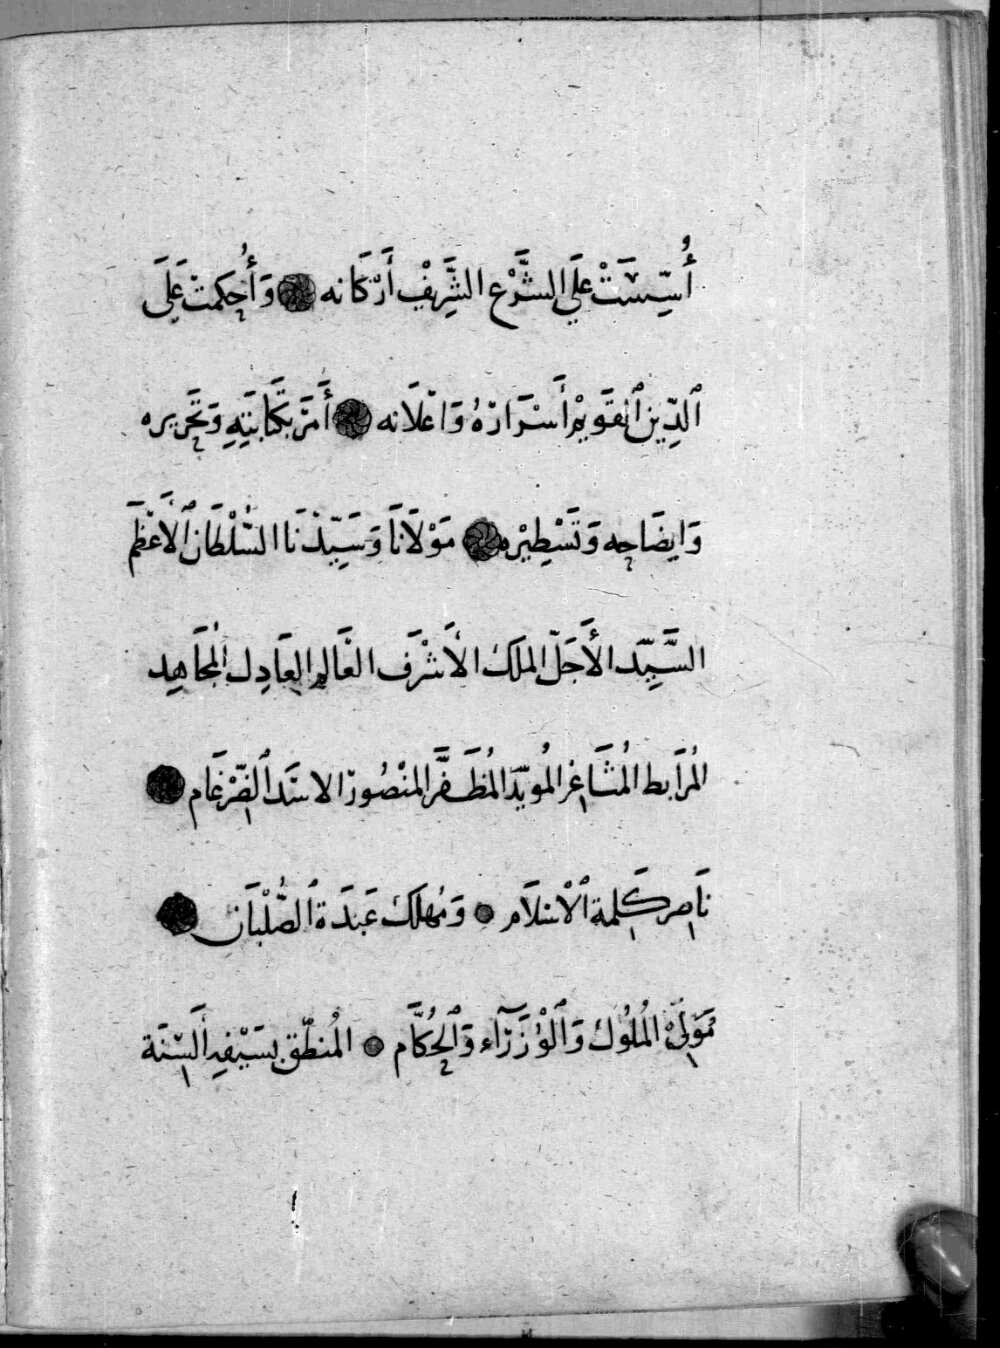 أُسِّسَتْ عَلَى الشَّرْعِ الشَّرِيْفِ أَرْكَانه ۞ وَأُحْكِمَتْ عَلَى
ٱلدِّينِ ٱلقَوِيْمِ أَسْرَارُهُ وَاعْلَانه ۞ أَمَرَ بكِتَابَتِهِ وَتَحْرِيره
وَايضَاحِه وَتَسْطِيْره ۞ مَوْلَانَا وَسَيِّدنَا السُّلْطَان ٱلأَعْظَم
السَّيِّد الأَجَلّ الملَك الأَشْرَف العَالِم العَادِل المُجَاهِد
المُرَابط المُثَاغِر المُويّد المُظَفَّر المنْصُور الاسَد ٱلضِّرْغَام ۞
نَاصِر كَلِمة ٱلْاسْلَام ۞ وَمُهْلك عَبَدَة ٱلصُّلْبَان ۞
مَوْلَى المُلُوك وَٱلْوُزَرَآء وَٱلحُكَّام ۞ المُنطّق بسَيْفِ السّنَة